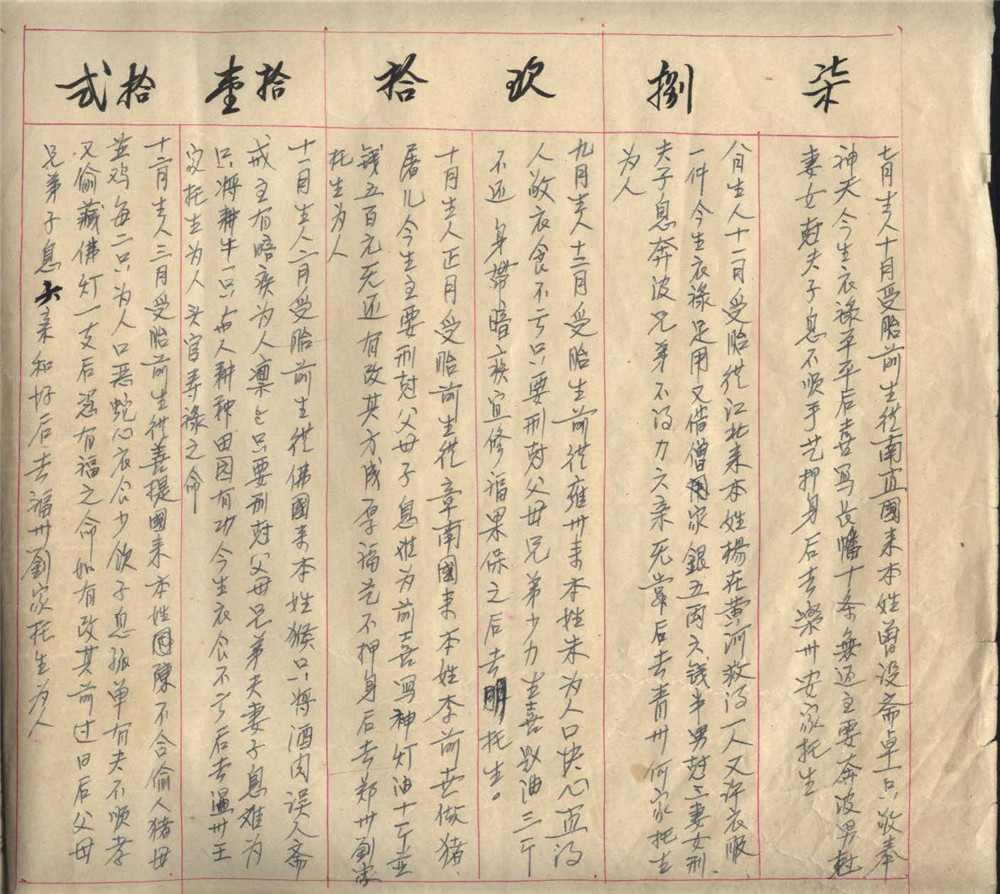 柒
捌
玖
拾
拾壹
拾弍
七月生人十月受胎前生從南宜國来本姓曾设斋卓一只敬奉
神天今生衣祿平平后喜写长幡十条無还主要奔波男尅
妻女尅夫子息不順手艺押身后去樂卅安家托生
八月生人十一月受胎從江北来本姓楊在黄河救得一人又许衣服
一件今生衣祿足用又借僧家銀五两六钱半男尅三妻女刑
夫子息奔波兄弟不得力六亲死靠后去青卅何家托生
为人
九月生人十二月受胎生前從雍卅来本姓朱为人口快心直得
人敬衣食不亏只要刑尅父母兄弟少力生喜油三斤
不还身带暗疾宜修福果保之后去明托生。
十月生人正月受胎前生從章南國来本姓李前世做猪
屠儿今生主要刑尅父母子息难为前喜写神灯油十斤並
钱五百元无还有改其方成厚福艺不押身后去郑卅劉家
托生为人
十一月生人二月受胎前生從佛國来本姓猴只将酒肉误人斋
戒主有暗疾为人凛乞只要刑尅父母兄弟夫妻子息难为
只将耕牛一只与人耕种田园有功今生衣食不亏后去温卅王
家托生为人头官寿祿之命
十二月生人三月受胎前生從善提國来本姓陳不合偷人猪母
並鸡每二只为人口恶蛇心衣食少飲子息孤单有夫不順孝
又偷藏佛灯一支后恐有福之命如有改其前过日后父母
兄弟子息六亲和好后去福卅劉家托生为人